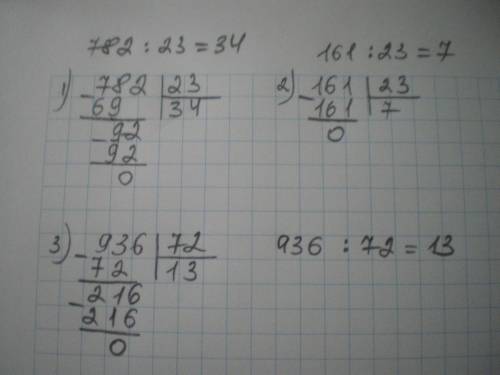 782 : 23 = 34
161 : 23 = 7
1) - 782 | 23
69 | 34
- 92
92
0
2) - 161 | 23
161 | 7
0
3) - 936 | 72
72 | 13
- 216
216
0
936 : 72 = 13